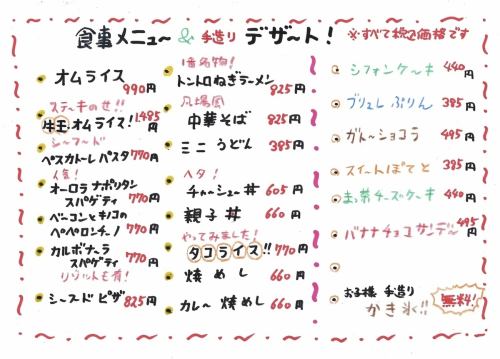 食事メニュー & 手造り デザート!
※すべて税込価格です
オムライス
990円
ステーキのせ!!
牛王オムライス! 1,485円
シーフード
ペスカトーレ パスタ 770円
人気!
オーロラ ナポリタン
スパゲティ 770円
ベーコンとキノコの
ペペロンチーノ 770円
カルボナーラ
スパゲティ 770円
リゾットも有!
シーフード ピザ 825円
1番名物!
トントロねぎラーメン
825円
丸場風
中華そば 825円
ミニ うどん 385円
ヘタ!
チャーシュー丼 605円
親子丼 660円
やってみました!
タコライス!! 770円
焼めし 660円
カレー 焼めし 660円
シフォンケーキ 440円
ブリュレ ぷりん 385円
ガトーショコラ 495円
スイートぽてと 385円
チーズケーキ 440円
バナナチョコサンデー 495円
お子様 手造り
かき氷!! 無料!